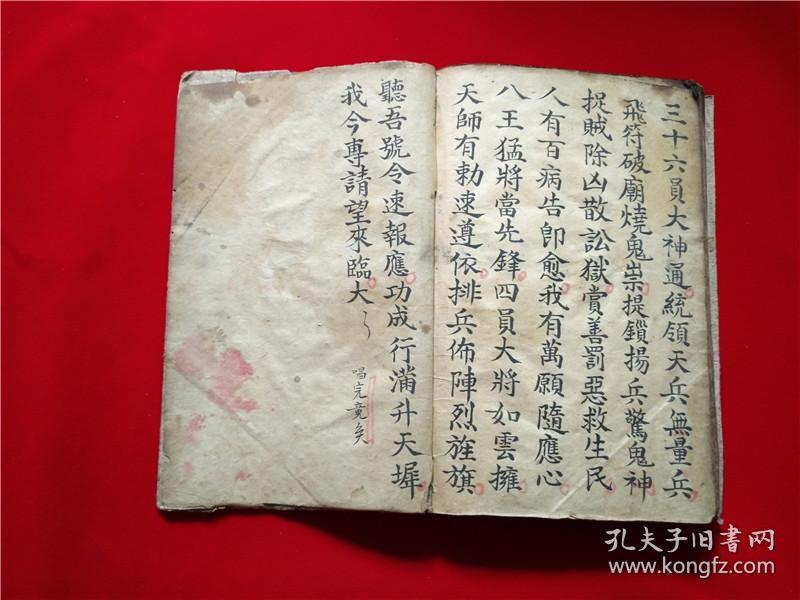 三十六員大神通統領天兵無量兵
飛符破廟燒鬼祟提鎖揚兵驚鬼神
捉賊除凶散訟獄賞善罰惡救生民
人有百病告即愈我有萬願隨應心
八王猛將當先鋒四員大將如雲擁
天師有勅速遵依排兵佈陣烈旌旗
聽吾號令速報應功成行滿升天墀
我今專請望來臨大〻
唱完竟矣
孔夫子旧书网
www.kongfz.com